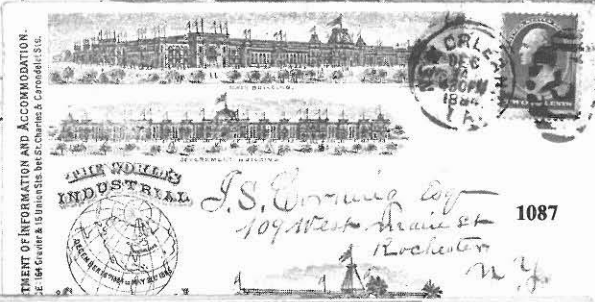 TMENT OF INFORMATION AND ACCOMMODATION.
E: 164 Gravier & 15 Union Sts. bet St. Charles & Carondelet Sts.
MAIN BUILDING.
GOVERNMENT BUILDING.
THE WORLD'S
INDUSTRIAL
ORLEAN
DEC
188
LA.
TWO CENTS
J. S. Corning Esq
109 West Main St
Rochester
N. Y.
1087